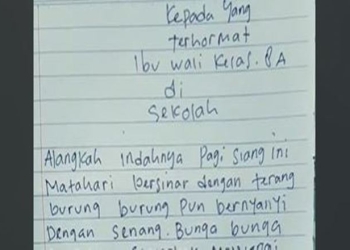 Kepada Yang
terhormat
Ibu wali Kelas. 8A
di
Sekolah
Alangkah Indahnya Pagi siang ini
Matahari bersinar dengan terang
burung burung Pun bernyanyi
Dengan senang. Bunga bunga